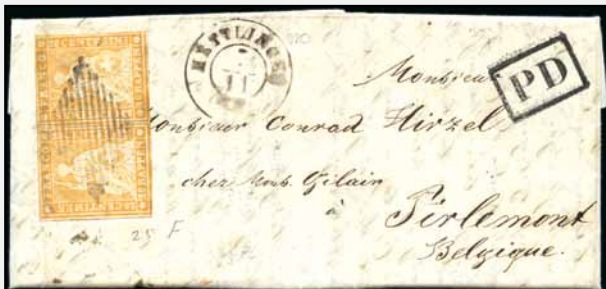 METTLINGEN
11
PD
Monsieur
Monsieur Conrad Hirzel
chez Gilain
à
Tirlemont
Belgique.
25 F